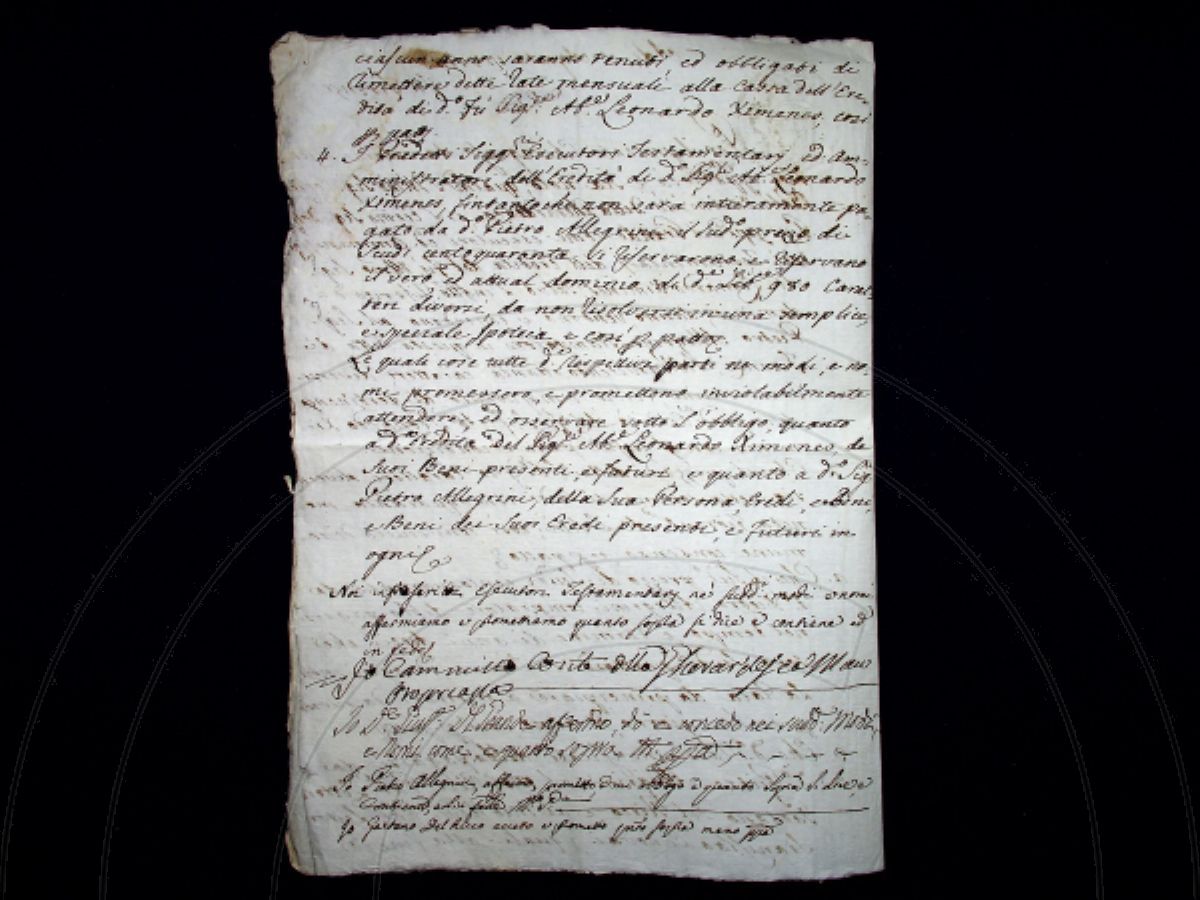 ciascun anno saranno tenuti ed obbligati di
rimettere dette rate mensuali alla Cassa dell'Ere-
dità di d.º fù Sig.re Ab.e Leonardo Ximenes, così
p. patt.
4. I Predetti Sigg.ri Esecutori Testamentarj, ed Am-
ministratori dell'Eredità di d.º Sig.re Ab.e Leonardo
Ximenes, fintantoche non sarà interamente pa-
gato da d.º Pietro Allegrini il sud.º prezzo di
Scudi centoquaranta si riservarono, e riservano
il vero ed attual dominio di d.e Lib.e 980 Carat-
teri diversi, da non risolversi in una semplice,
e speciale Ipoteca, e così p. patto
Le quali cose tutte d.e respettive parti ne modi, e no-
mi promessero, e promettono inviolabilmente
attendere, ed osservare sotto l'obbligo, quanto
a d.a Eredità del Sig.re Ab.e Leonardo Ximenes, de
Suoi Beni presenti, e futuri e quanto a d.º Sig.
Pietro Allegrini, della Sua Persona, Eredi, e Beni,
e Beni dei Suoi Eredi presenti, e futuri in
ogni
Noi infrascritti Esecutori Testamentarj ne' sudd. modi e nomi
affermiamo e promettiamo quanto sopra si dice e contiene ed
in fede
Io Cammillo Conte della Mano
Propria
Io affermo, e concedo nei sudd. Modi,
e Nomi come, e quanto sopra M. ppa
Io Pietro Allegrini, affermo, prometto e mi obbligo a quanto Sopra Si dice, e
Contiene, ed in fede M.º P.a
Io Gaetano Del Ricco accetto e prometto quto sopra mano ppa